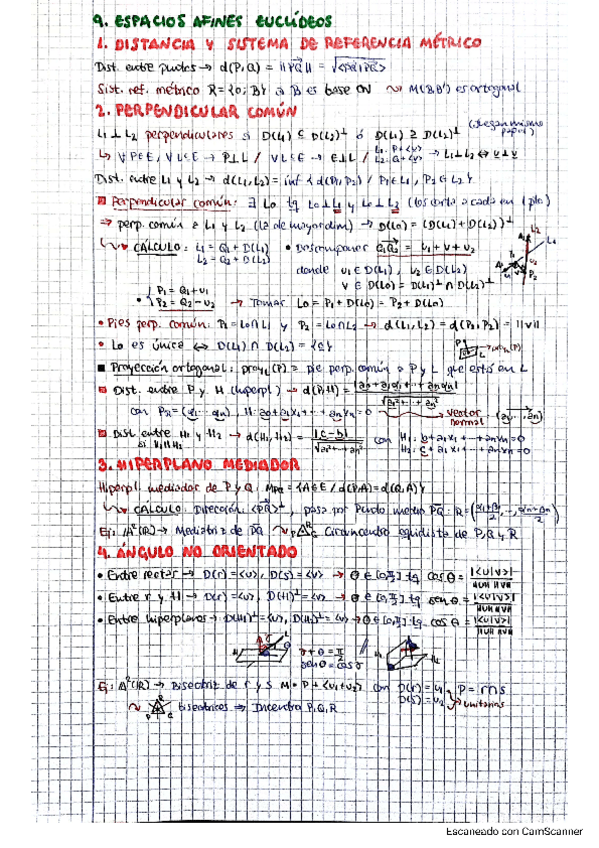 9. ESPACIOS AFINES EUCLÍDEOS
1. DISTANCIA Y SISTEMA DE REFERENCIA MÉTRICO
Dist. entre puntos → d(P,Q) = ||PQ|| = √<PQ|PQ>
Sist. ref. métrico R = {O; B} si B es base ON ⇝ M(B,B') es ortogonal
2. PERPENDICULAR COMÚN
L₁ ⊥ L₂ perpendiculares si D(L₁) ⊆ D(L₂)^⊥ ó D(L₁) ⊇ D(L₂)^⊥
Dist. entre L₁ y L₂ → d(L₁,L₂) = inf { d(P₁,P₂) / P₁ ∈ L₁, P₂ ∈ L₂ }
Perpendicular común: ∃ L₀ tq L₀ ⊥ L₁ y L₀ ⊥ L₂ (los corta a cada en 1 pto)
⇒ perp. común a L₁ y L₂ (la de mayor dim) → D(L₀) = (D(L₁) + D(L₂))^⊥
CÁLCULO: L₁ = Q₁ + D(L₁) • Descomponer Q₁Q₂ = u₁ + v + u₂
L₂ = Q₂ + D(L₂) donde u₁ ∈ D(L₁), u₂ ∈ D(L₂)
v ∈ D(L₀) = D(L₁)^⊥ ∩ D(L₂)^⊥
• P₁ = Q₁ + u₁
P₂ = Q₂ - u₂ → Tomar L₀ = P₁ + D(L₀) = P₂ + D(L₀)
• Pies perp. común: P₁ = L₀∩L₁ y P₂ = L₀∩L₂ → d(L₁,L₂) = d(P₁,P₂) = ||v||
• L₀ es única ⇔ D(L₁) ∩ D(L₂) = {0}
Proyección ortogonal: proy_L(P) = pie perp. común a P y L que está en L
Dist. entre P y H (hiperpl.) → d(P,H) = |a₀+a₁α₁+···+aₙαₙ| / √a₁²+···+aₙ²
con P_R = (α₁,···,αₙ), H: a₀+a₁x₁+···+aₙxₙ=0 → vector normal (a₁,···,aₙ)
Dist. entre H₁ y H₂ → d(H₁,H₂) = |c-b| / √a₁²+···+aₙ² con H₁: b+a₁x₁+···+aₙxₙ=0
si H₁||H₂ H₂: c+a₁x₁+···+aₙxₙ=0
3. HIPERPLANO MEDIADOR
Hiperpl. mediador de P y Q: M_PQ = {A∈E / d(P,A)=d(Q,A)}
CÁLCULO: Dirección <PQ>^⊥, pasa por Punto medio PQ: R = (α₁+β₁/2, ···, αₙ+βₙ/2)
Ej: A²(R) → Mediatriz de PQ ⇝ Circuncentro equidista de P, Q y R
4. ÁNGULO NO ORIENTADO
• Entre rectas → D(r) = <u>, D(s) = <v> → θ ∈ [0,π/2] tq cos θ = |<u|v>| / ||u|| ||v||
• Entre r y H → D(r) = <u>, D(H)^⊥ = <v> → θ ∈ [0,π/2] tq sen θ = |<u|v>| / ||u|| ||v||
• Entre hiperplanos → D(H₁)^⊥ = <u>, D(H₂)^⊥ = <v> → θ ∈ [0,π/2] tq cos θ = |<u|v>| / ||u|| ||v||
γ + θ = π/2
sen θ = cos γ
Ej: A²(R) → Bisectriz de r y s M = P + <u₁+u₂> con D(r) = u₁, P = r∩s
D(s) = u₂ unitarios
bisectrices → Incentro P, Q, R
Escaneado con CamScanner